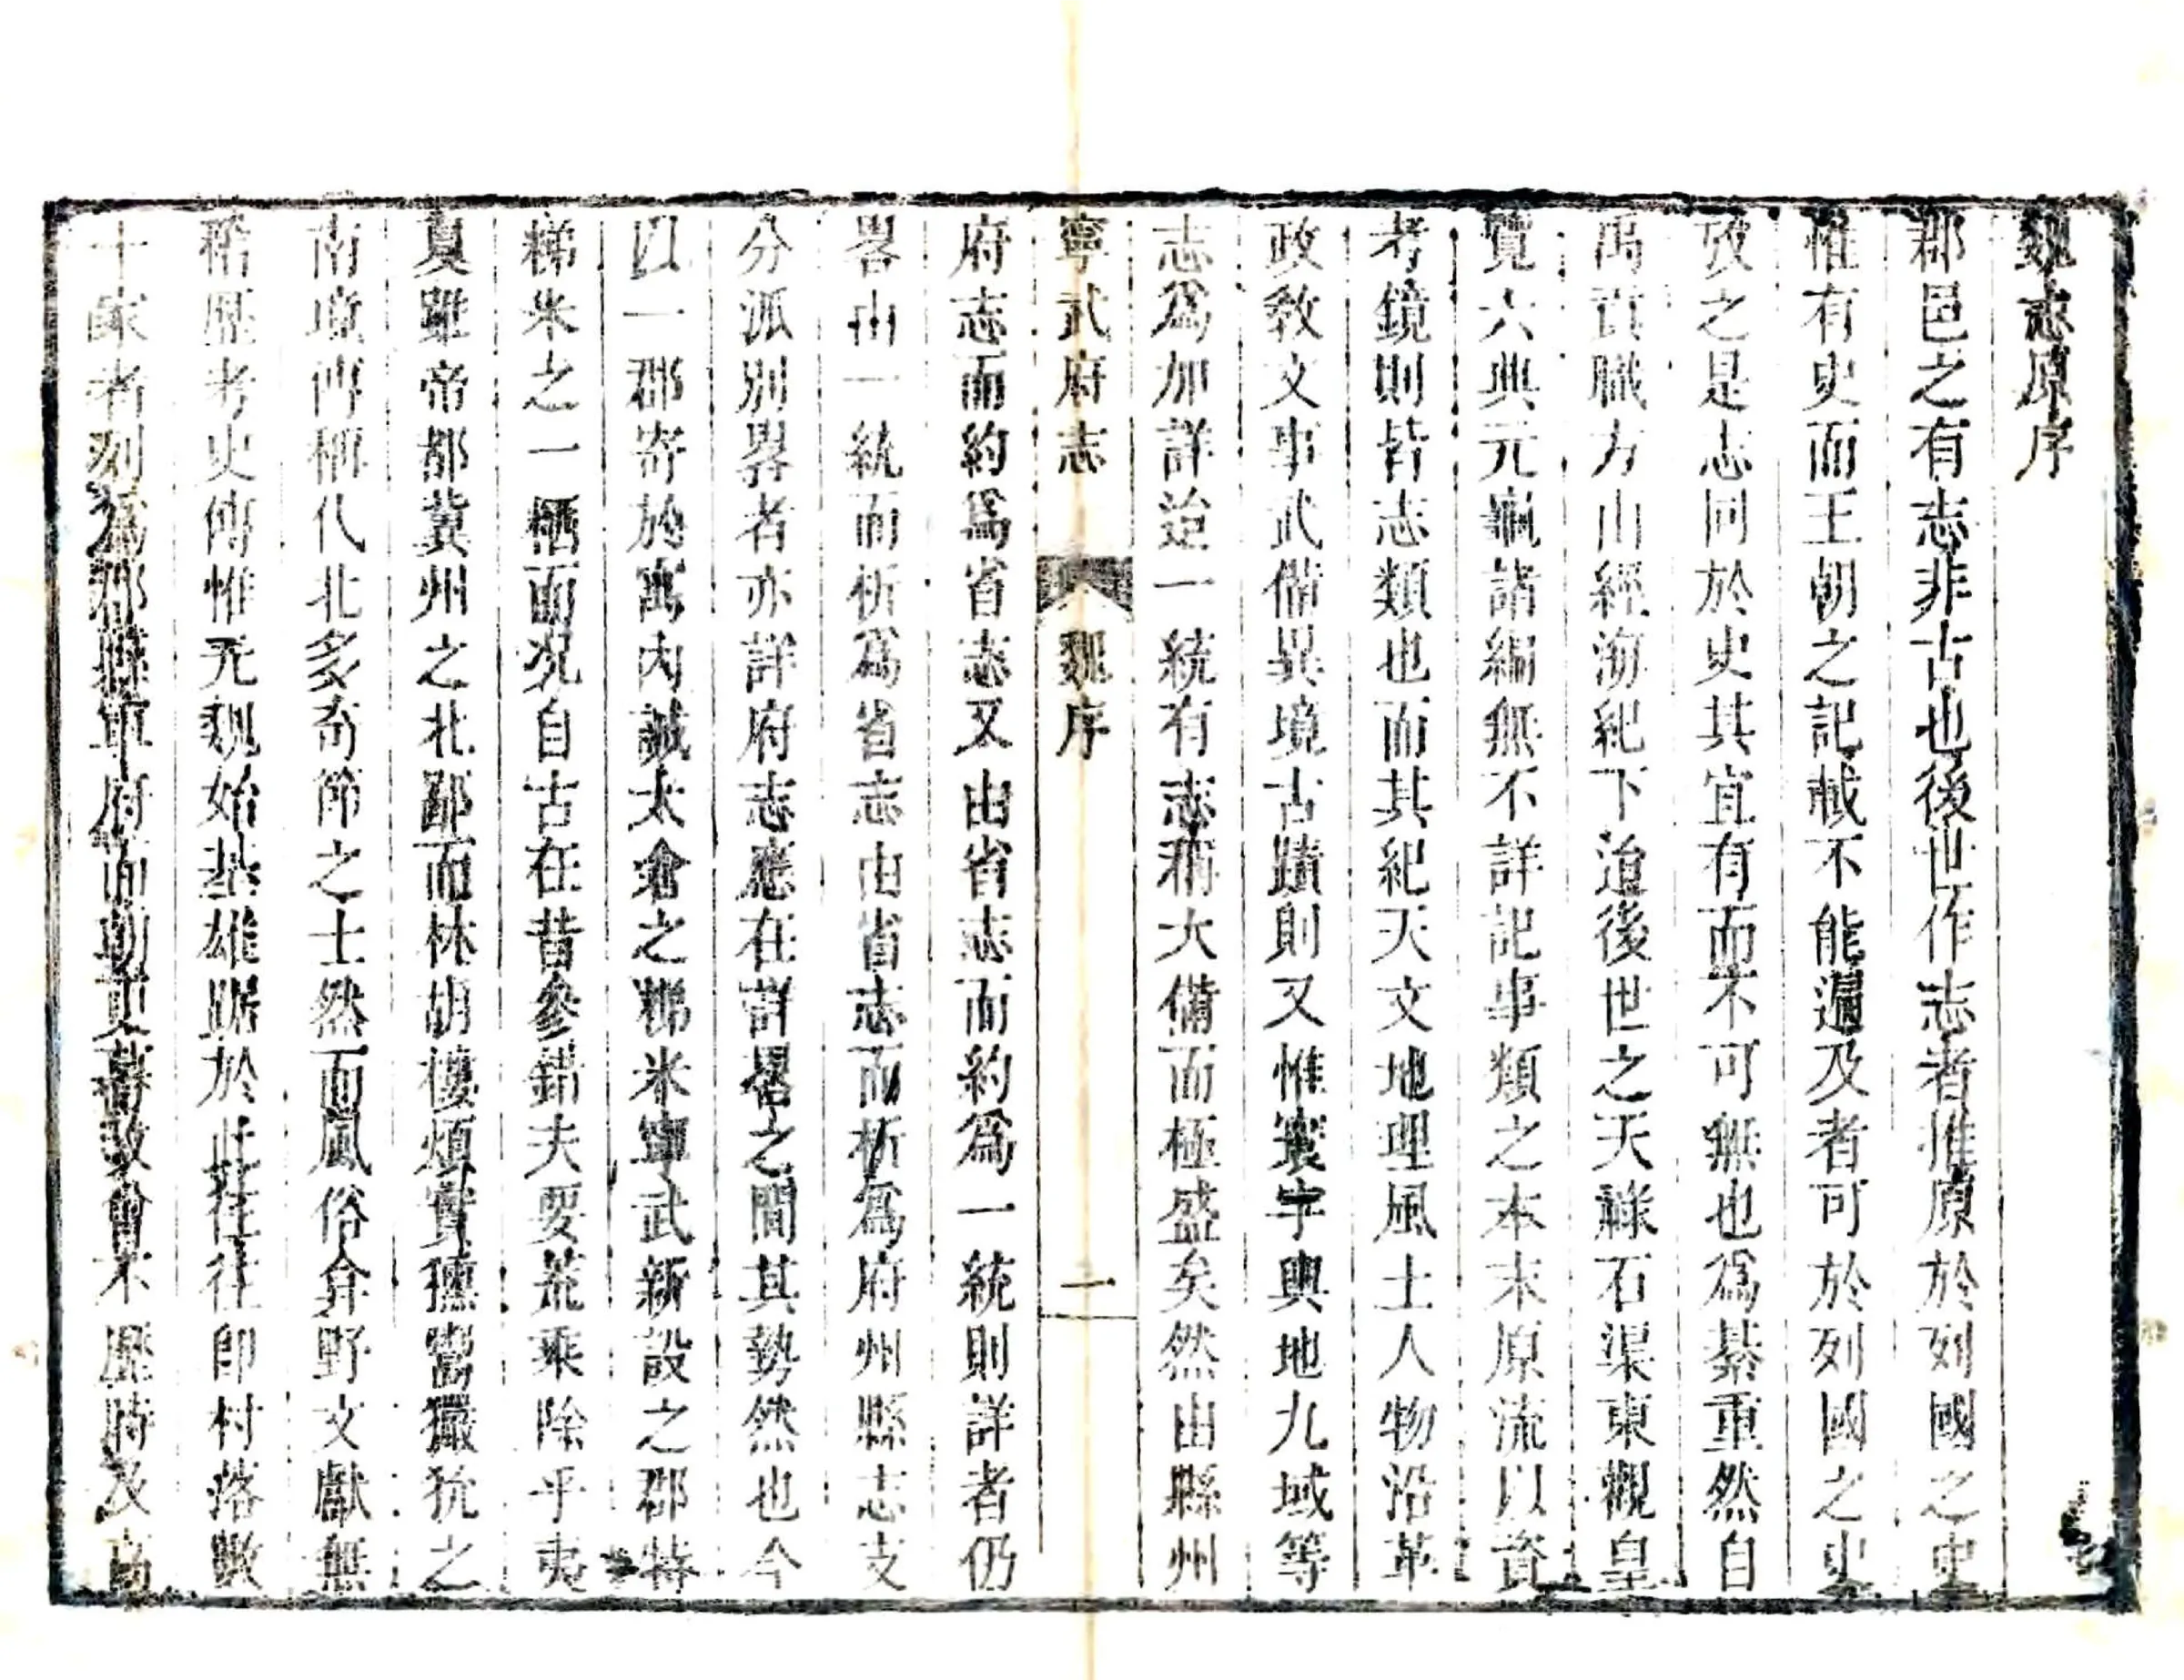 魏志原序
郡邑之有志非古也後世作志者推原於列國之史
惟有史而王朝之記載不能遍及者可於列國之史
攷之是志同於史其宜有而不可無也爲綦重然自
禹貢職方山經海紀下迨後世之天祿石渠東觀皇
覽六典元龜諸編無不詳記事類之本末原流以資
考鏡則皆志類也而其紀天文地理風土人物沿革
政教文事武備異境古蹟則又惟寰宇輿地九域等
志爲加詳迨一統有志稱大備而極盛矣然由縣州
寧武府志 魏序 一
府志而約爲省志又由省志而約爲一統則詳者仍
畧由一統而析爲省志由省志而析爲府州縣志支
分派別畧者亦詳府志應在詳畧之間其勢然也今
以一郡寄於寓內誠太倉之稊米寧武新設之郡特
稊米之一栖而况自古在昔參錯夫要荒乘除乎夷
夏雖帝都冀州之北鄙而林胡樓煩實獯鬻玁狁之
南境傳稱代北多奇節之士然而風俗弁野文獻無
稽歷考史傳惟元魏始基雄踞於此往往即村落數
十家者列爲郡縣軍府而朝更暮改曾不歷時及